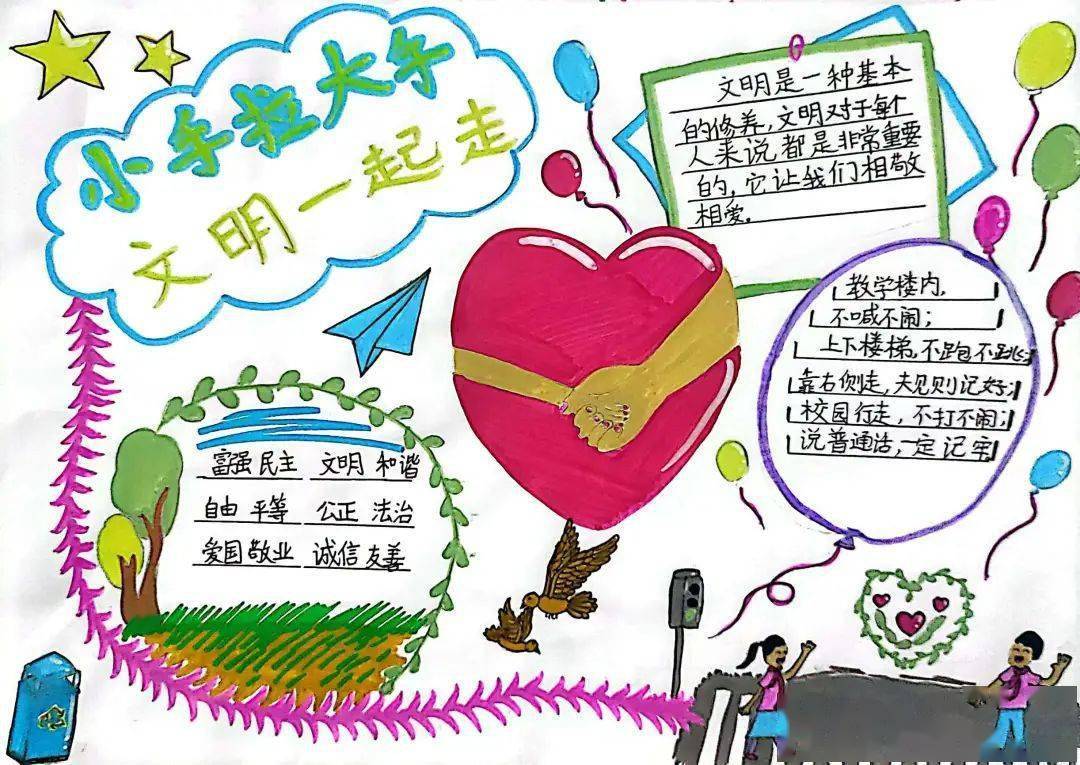 小手拉大手
文明一起走
文明是一种基本
的修养,文明对于每个
人来说都是非常重要
的,它让我们相敬
相爱.
教学楼内,
不喊不闹;
上下楼梯,不跑不跳;
靠右侧走,规则记好;
校园行走,不打不闹;
说普通话,一定记牢
富强 民主 文明 和谐
自由 平等 公正 法治
爱国 敬业 诚信 友善